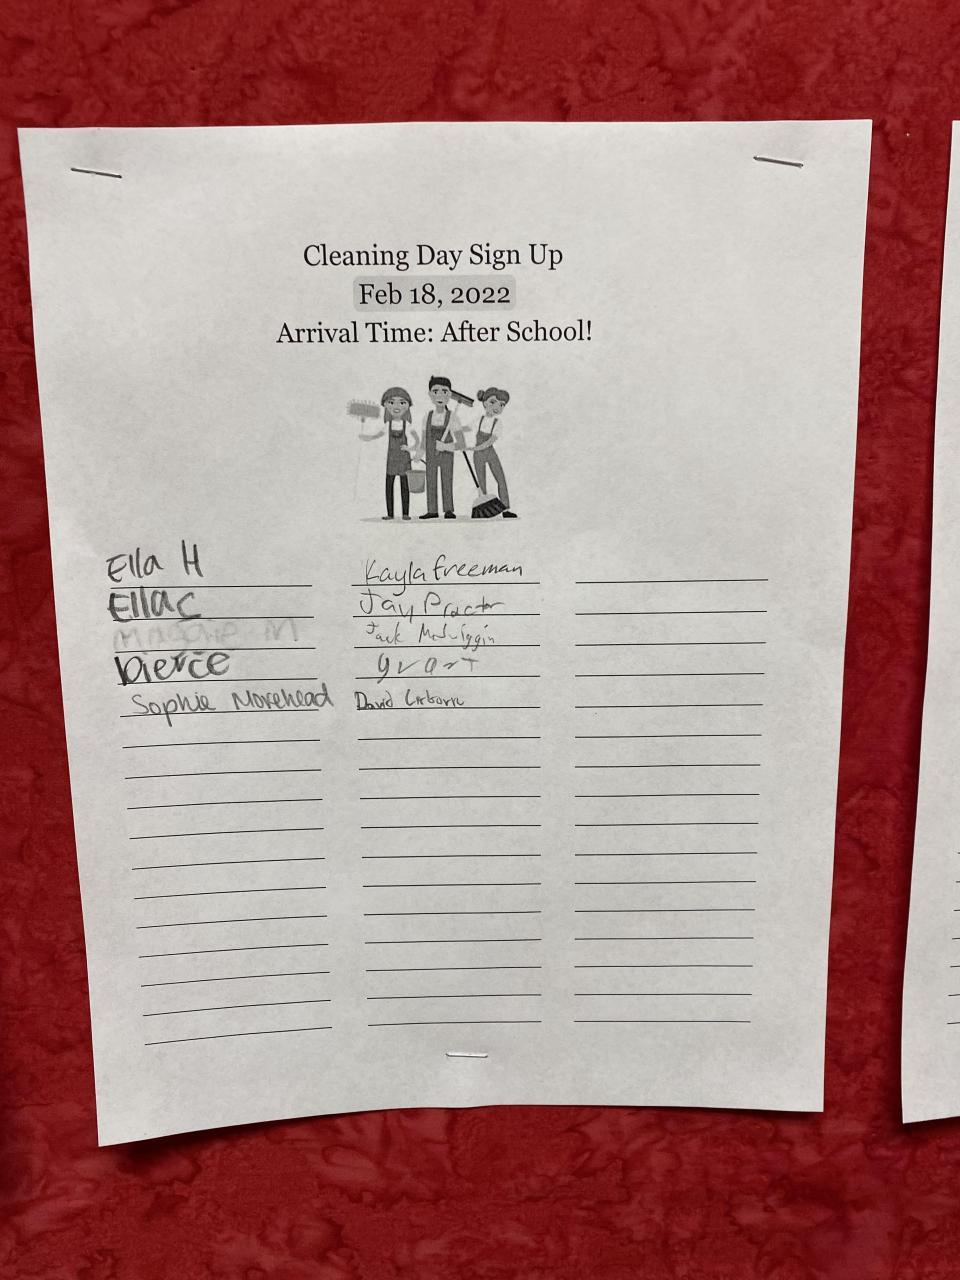 Cleaning Day Sign Up
Feb 18, 2022
Arrival Time: After School!
Ella H
Ella C
Maggie M
Pierce
Sophie Morehead
Kayla Freeman
Jay Proctor
Jack
Grant
David